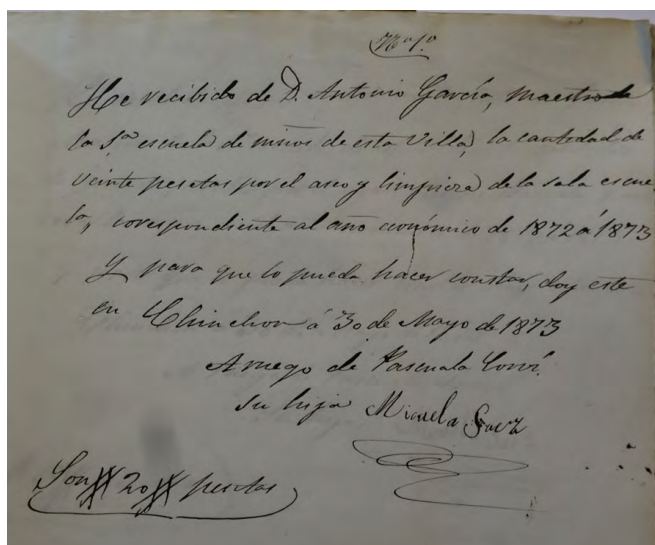 Nº 1º
He recibido de D. Antonio García, maestro de
la 1ª escuela de niños de esta Villa, la cantidad de
veinte pesetas por el aseo y limpieza de la sala escue-
la, correspondiente al año económico de 1872 á 1873
Y para que lo pueda hacer constar, doy este
en Chinchon á 30 de Mayo de 1873
A ruego de Pascuala
Su hija Micaela Saez
Son 20 pesetas